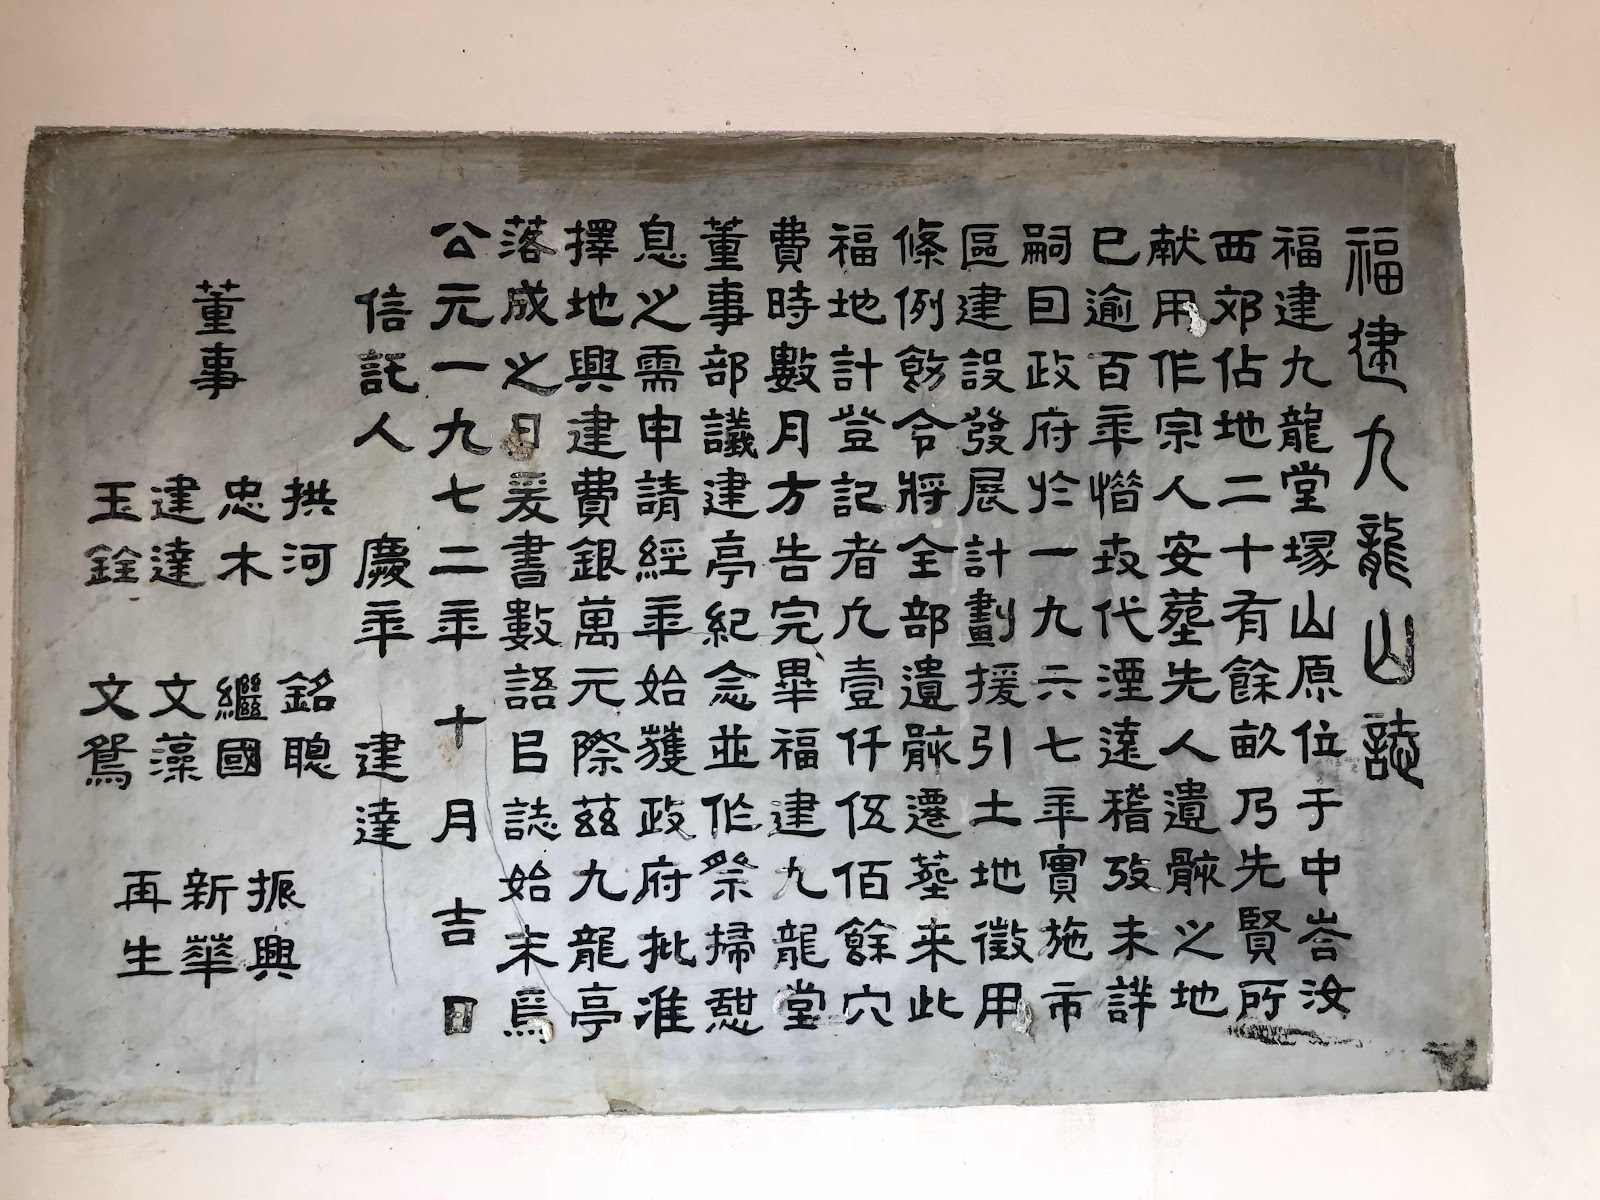 福建九龍山誌
福建九龍堂塚山原位于中峇汝
西郊佔地二十有餘畝乃先賢所
献用作宗人安墓先人遺骸之地
已逾百年惜世代湮遠稽攷未詳
嗣曰政府於一九六七年實施市
區建設發展計劃援引土地徵用
條例飭令將全部遺骸遷墓來此
福地計登記者凡壹仟伍佰餘穴
費時數月方告完畢福建九龍堂
董事部議建亭紀念並作祭掃憇
息之需申請經年始獲政府批准
擇地興建費銀萬元際茲九龍亭
落成之日爰書數語吕誌始末焉
公元一九七二年十月吉日
信託人 慶年 建達
董事
拱河 銘聰 振興
忠木 繼國 新華
建達 文藻 再生
玉銓 文鴛